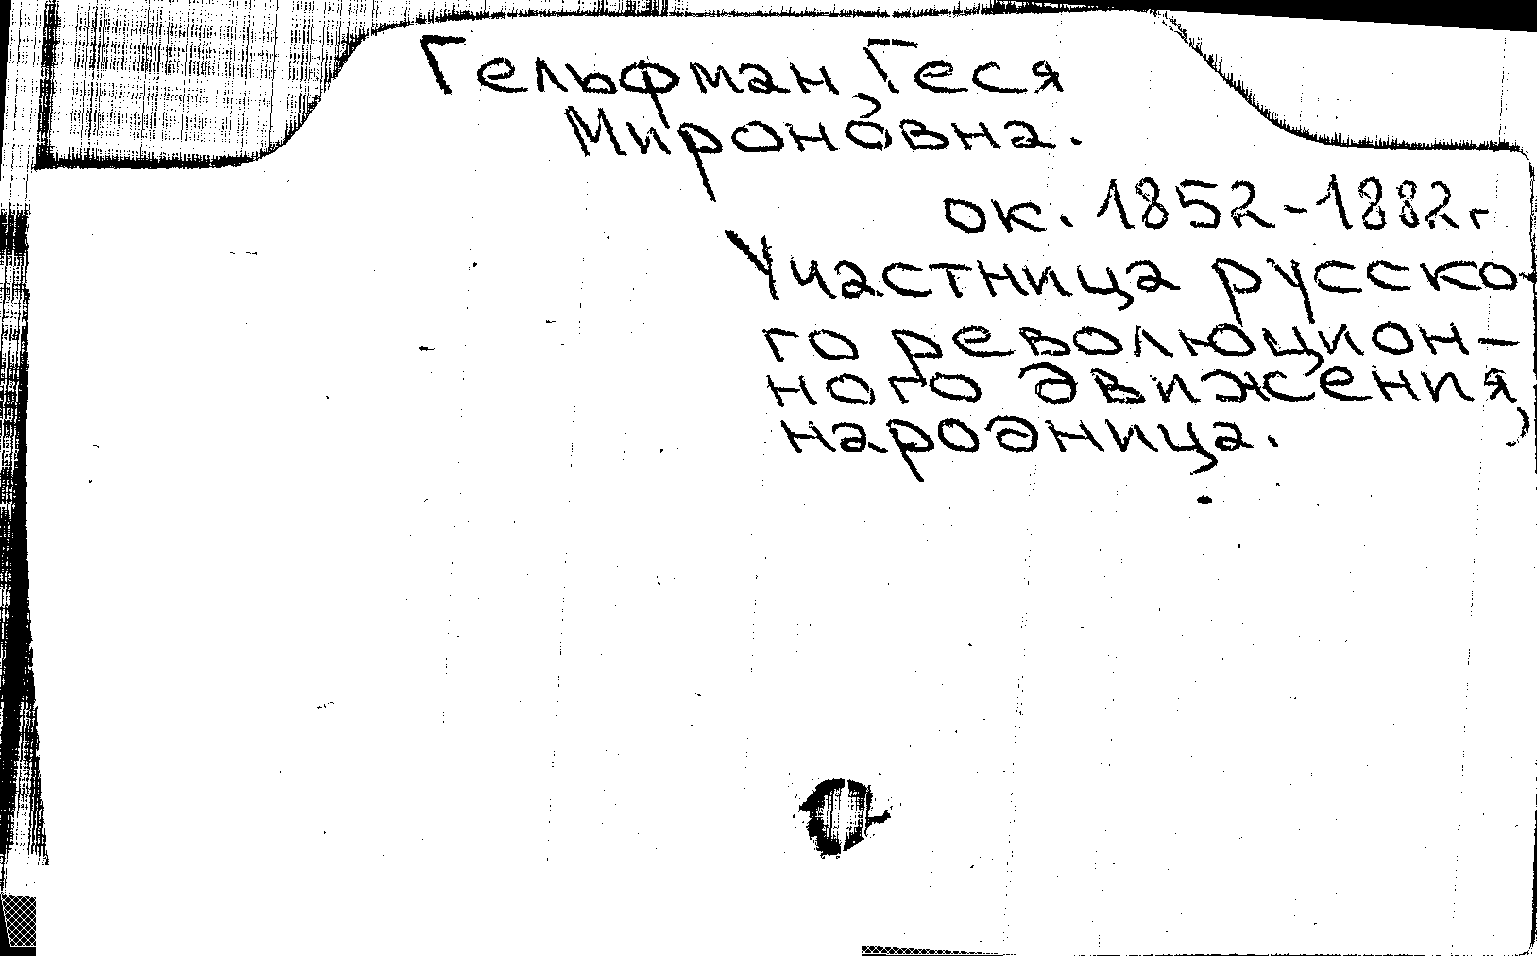 Гельфман, Геся
Мироновна.
ок. 1852-1882г
Участница русско-
го революцион-
ного движения,
народница.